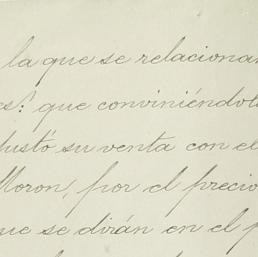 la que se relacionan
es: que conviniéndole
justó su venta con el
Moron, por el precio
que se dirán en el p